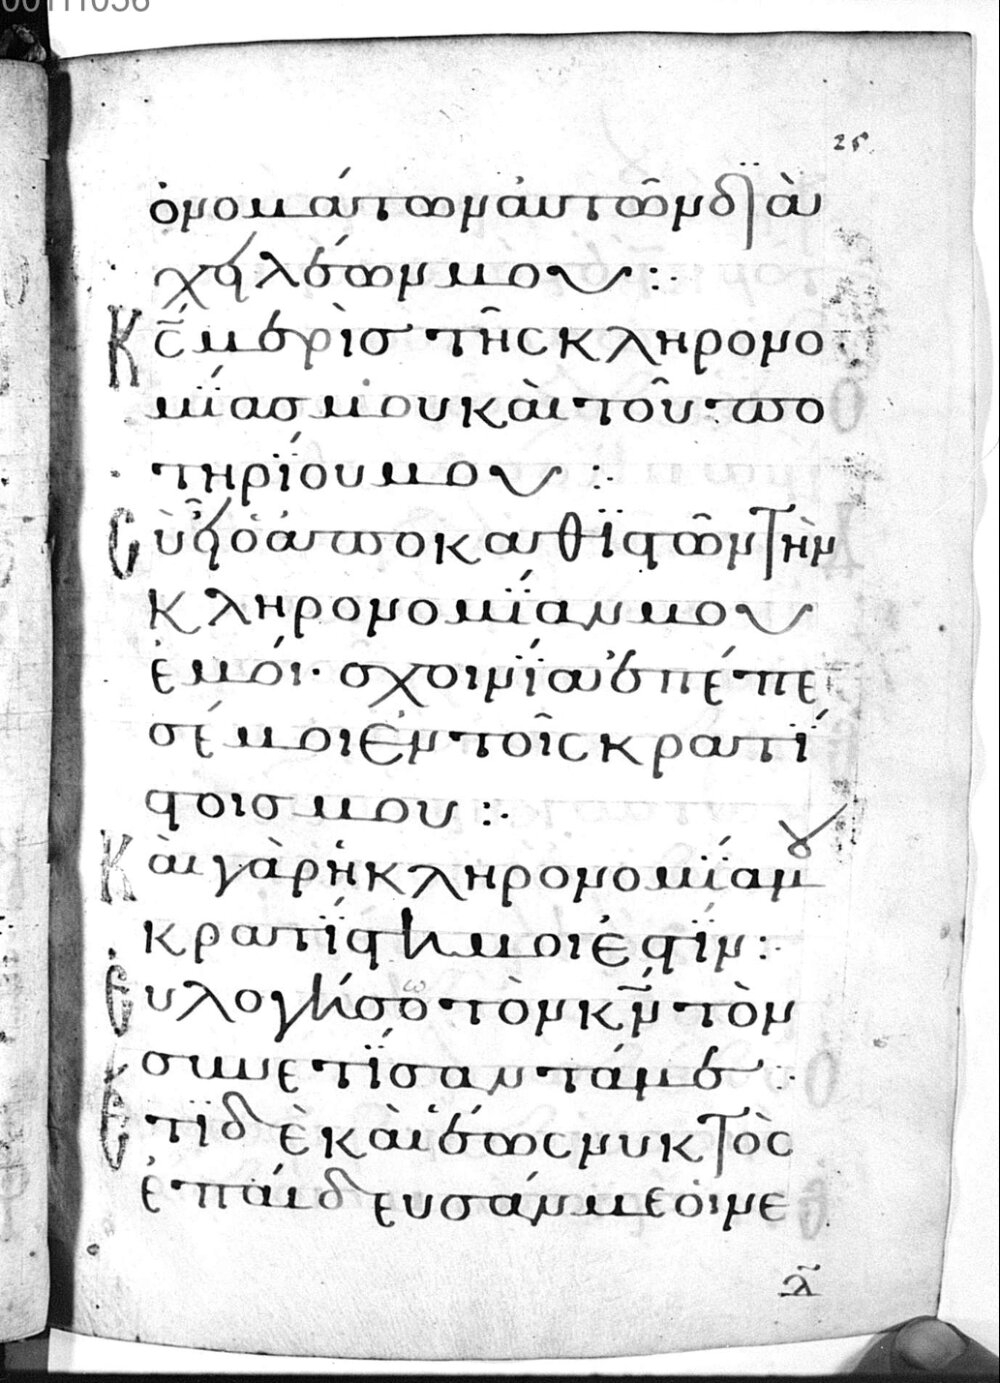 25
ὀνομάτων ἀυτῶν δϊὰ
χειλέων μου :·
Κς̃ μερὶσ τῆς κληρονο
μΐασ μου κὰι τοῦ πο
τηρΐου μου :·
Εὺ εἶ ὁ ἀποκαθϊστῶν τὴν
κληρονομΐαν μου
ἐμόι· σχοινΐα ἐπέπε
σέ μοι ἐν τοῖς κρατί
στοισ μου :·
Κὰι γὰρ ἡ κληρονομΐα μου
κρατΐστη μοι ἐστΐν :·
Εὐλογήσω τὸν κν̃ τὸν
συνετΐσαντά με :·
Ἔτϊ δὲ κὰι ἕως νυκτὸς
ἐπάιδευσάν με ὁι νε
λ